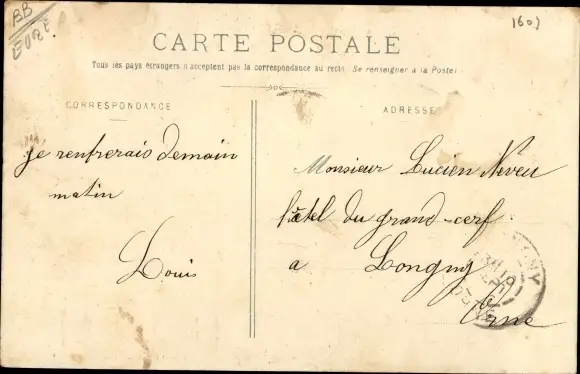 BB
EURE
1603
CARTE POSTALE
Tous les pays étrangers n'acceptent pas la correspondance au recto Se renseigner à la Poste
CORRESPONDANCE
ADRESSE
je rentrerais demain
matin
Louis
Monsieur Lucien Neveu
hôtel du grand-cerf
a Longny
Orne